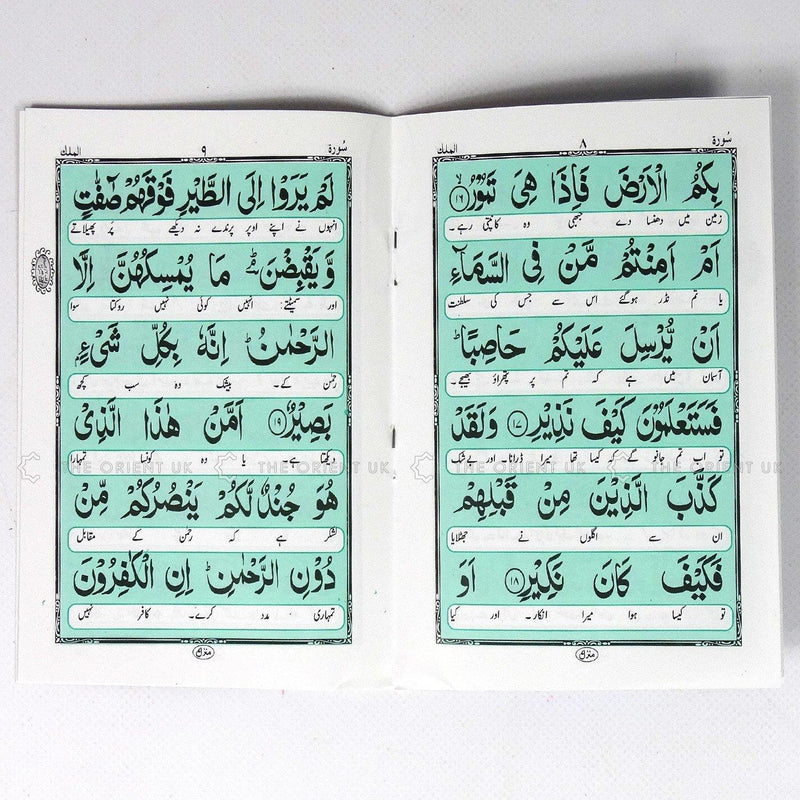 سُورة ٨ الملك
بِكُمُ الْاَرْضَ فَاِذَا هِیَ تَمُوْرُۙ ۱۶
زمین میں دھنسا دے جبھی وہ کانپتی رہے۔
اَمْ اَمِنْتُمْ مَّنْ فِی السَّمَآءِ
یا تم نڈر ہوگئے اس سے جس کی سلطنت
اَنْ یُّرْسِلَ عَلَیْكُمْ حَاصِبًاؕ
آسمان میں ہے کہ تم پر پتھراؤ بھیجے۔
فَسَتَعْلَمُوْنَ كَیْفَ نَذِیْرِ ۱۷ وَلَقَدْ
تو اب تم جانو گے کہ کیسا تھا میرا ڈرانا۔ اور بے شک
كَذَّبَ الَّذِیْنَ مِنْ قَبْلِهِمْ
ان سے اگلوں نے جھٹلایا
فَكَیْفَ كَانَ نَكِیْرِ ۱۸ اَوَ
تو کیسا ہوا میرا انکار۔ اور کیا
سُورة ٩ الملك
لَمْ یَرَوْا اِلَی الطَّیْرِ فَوْقَهُمْ صٰٓفّٰتٍ
انہوں نے اپنے اوپر پرندے نہ دیکھے پر پھیلاتے
وَّیَقْبِضْنَ ؔؕ مَا یُمْسِكُهُنَّ اِلَّا
اور سمیٹتے: انہیں کوئی نہیں روکتا سوا
الرَّحْمٰنُؕ اِنَّهٗ بِكُلِّ شَیْءٍۭ
رحمٰن کے۔ بیشک وہ سب کچھ
بَصِیْرٌ ۱۹ اَمَّنْ هٰذَا الَّذِیْ
دیکھتا ہے۔ یا وہ کونسا تمہارا
هُوَ جُنْدٌ لَّكُمْ یَنْصُرُكُمْ مِّنْ
لشکر ہے کہ رحمٰن کے مقابل
دُوْنِ الرَّحْمٰنِؕ اِنِ الْكٰفِرُوْنَ
تمہاری مدد کرے۔ کافر نہیں
THE ORIENT UK THE ORIENT UK THE ORIENT UK